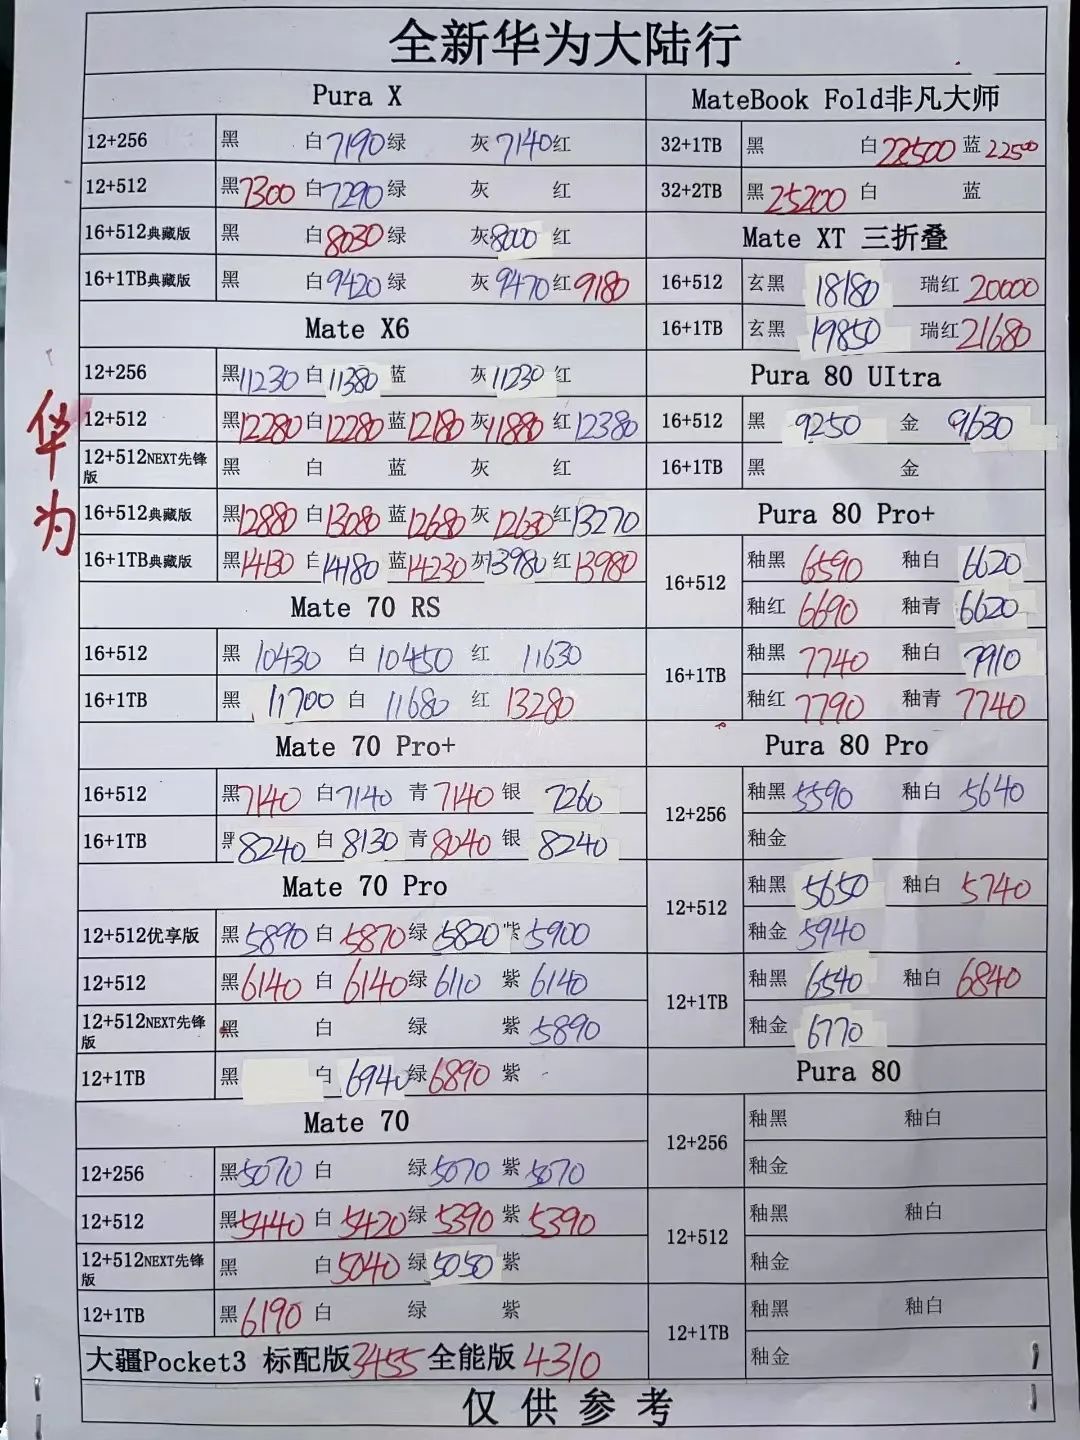 全新华为大陆行
华为
Pura X
12+256 黑 白7190 绿 灰7140 红
12+512 黑7300 白7290 绿 灰 红
16+512典藏版 黑 白8030 绿 灰8000 红
16+1TB典藏版 黑 白9420 绿 灰9470 红9180
Mate X6
12+256 黑11230 白11380 蓝 灰11230 红
12+512 黑12280 白12280 蓝12180 灰11880 红12380
12+512NEXT先锋版 黑 白 蓝 灰 红
16+512典藏版 黑12880 白13080 蓝12680 灰12630 红13270
16+1TB典藏版 黑14130 白14180 蓝14230 灰13980 红13980
Mate 70 RS
16+512 黑 10430 白 10450 红 11630
16+1TB 黑 11700 白 11680 红 13280
Mate 70 Pro+
16+512 黑7140 白7140 青7140 银 7260
16+1TB 黑8240 白8130 青8040 银 8240
Mate 70 Pro
12+512优享版 黑5890 白5870 绿5820 紫5900
12+512 黑6140 白6140 绿6110 紫6140
12+512NEXT先锋版 黑 白 绿 紫5890
12+1TB 黑 白6940 绿6890 紫
Mate 70
12+256 黑5070 白 绿5070 紫5070
12+512 黑5440 白5420 绿5390 紫5390
12+512NEXT先锋版 黑 白5040 绿5050 紫
12+1TB 黑6190 白 绿 紫
大疆Pocket3 标配版3455 全能版4310
MateBook Fold非凡大师
32+1TB 黑 白22500 蓝22500
32+2TB 黑25200 白 蓝
Mate XT 三折叠
16+512 玄黑 18180 瑞红20000
16+1TB 玄黑 19850 瑞红21680
Pura 80 UItra
16+512 黑 9250 金 9630
16+1TB 黑 金
Pura 80 Pro+
16+512 釉黑 6590 釉白 6620
釉红 6690 釉青 6620
16+1TB 釉黑 7740 釉白 7910
釉红 7790 釉青 7740
Pura 80 Pro
12+256 釉黑5590 釉白 5640
釉金
12+512 釉黑 5650 釉白 5740
釉金 5940
12+1TB 釉黑 6540 釉白 6840
釉金 6770
Pura 80
12+256 釉黑 釉白
釉金
12+512 釉黑 釉白
釉金
12+1TB 釉黑 釉白
釉金
仅供参考